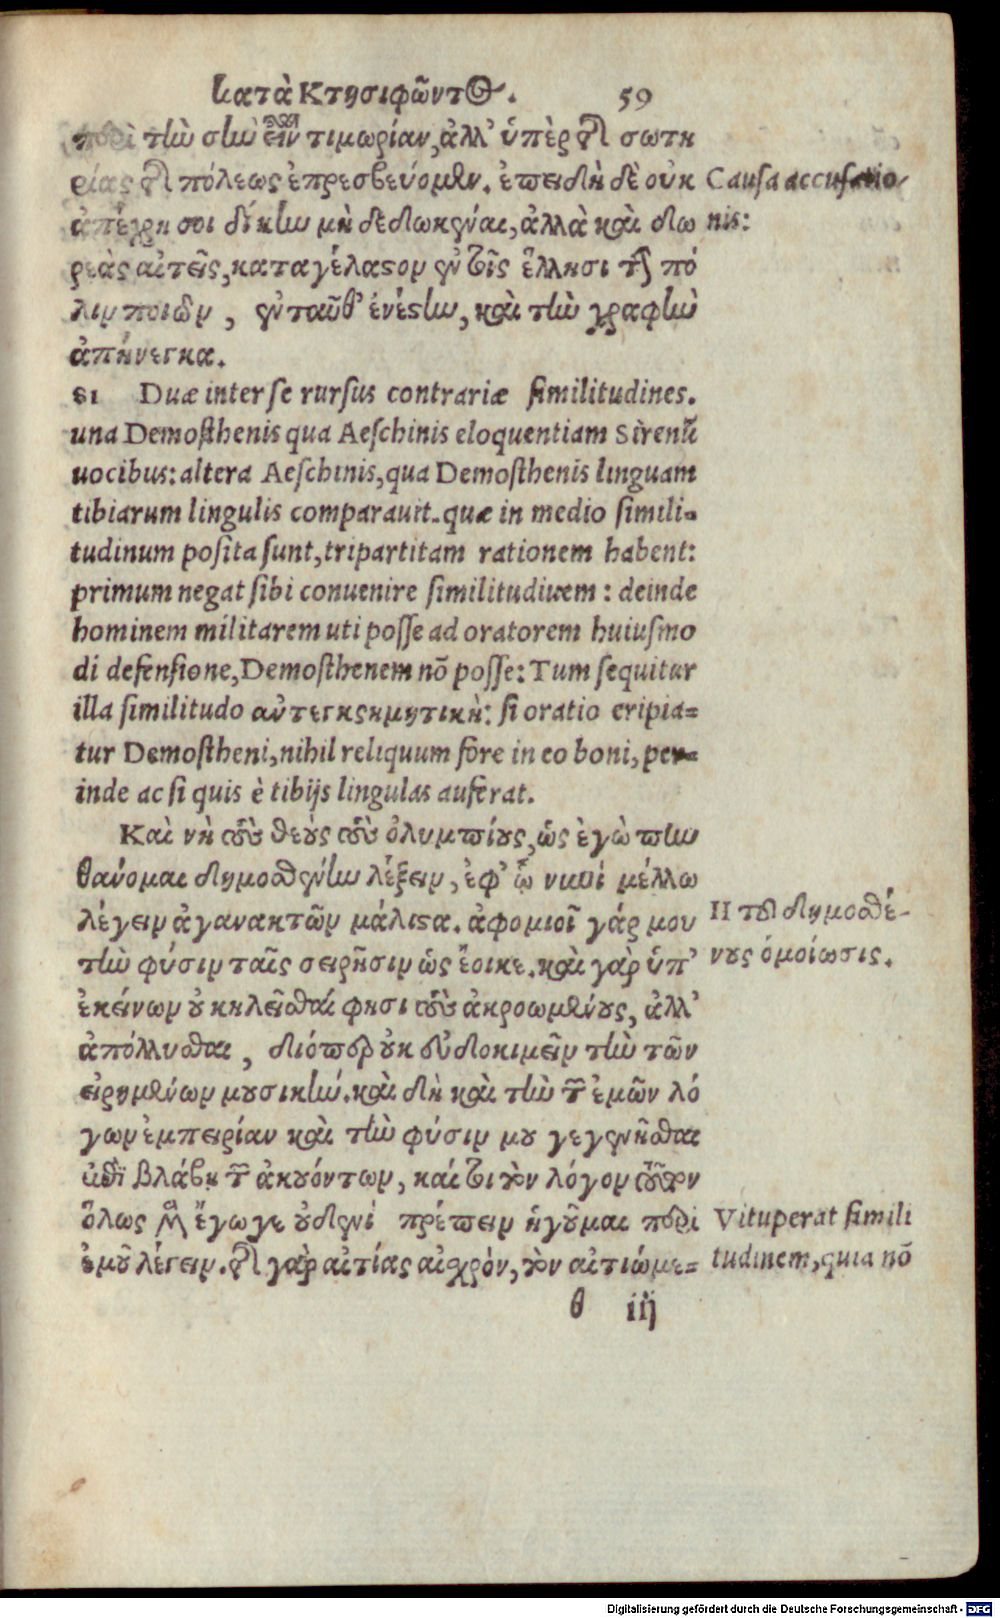 κατὰ Κτησιφῶντος. 59
περὶ τὴν σὴν εἶναι τιμωρίαν, ἀλλ' ὑπὲρ τῆς σωτη
ρίας τῆς πόλεως ἐπρεσβεύομεν. ἐπειδὴ δὲ οὐκ
ἀπέχρη σοι δίκην μὴ δεδωκέναι, ἀλλὰ καὶ δω
ρεὰς αἰτεῖς, καταγέλαστον ἐν τοῖς ἕλλησι τὴν πό
λιν ποιῶν, ἐνταῦθ' ἐνέστην, καὶ τὴν γραφὴν
ἀπήνεγκα.
Causa accusatio
nis:
81 Duæ inter se rursus contrariæ similitudines.
una Demosthenis qua Aeschinis eloquentiam Sirenū
uocibus: altera Aeschinis, qua Demosthenis linguam
tibiarum lingulis comparauit. quæ in medio simili-
tudinum posita sunt, tripartitam rationem habent:
primum negat sibi conuenire similitudinem: deinde
hominem militarem uti posse ad oratorem huiusmo
di defensione, Demosthenem nō posse: Tum sequitur
illa similitudo : si oratio eripia-
tur Demostheni, nihil reliquum fore in eo boni, per-
inde ac si quis è tibijs lingulas auferat.
Καὶ νὴ τοὺς θεοὺς τοὺς ὀλυμπίους, ὡς ἐγὼ πυν
θάνομαι δημοσθένην λέξειν, ἐφ' ᾧ νυνὶ μέλλω
λέγειν ἀγανακτῶν μάλιστα. ἀφομοιοῖ γάρ μου
τὴν φύσιν ταῖς σειρῆσιν ὡς ἔοικε. καὶ γὰρ ὑπ'
ἐκείνων οὐ κηλεῖσθαί φησι τοὺς ἀκροωμένους, ἀλλ'
ἀπόλλυσθαι, διόπερ οὐκ εὐδοκιμεῖν τὴν τῶν
σειρήνων μουσικήν. καὶ δὴ καὶ τὴν τῶν ἐμῶν λό
γων ἐμπειρίαν καὶ τὴν φύσιν μου γεγενῆσθαι
ἐπὶ βλάβῃ τῶν ἀκουόντων, καί τοι τὸν λόγον τοῦτον
ὅλως μὲν ἔγωγε οὐδενὶ πρέπειν ἡγοῦμαι περὶ
ἐμοῦ λέγειν. τῆς γὰρ αἰτίας αἰσχρόν, τὸν αἰτιώμε-
Η τοῦ δημοσθέ-
νους ὁμοίωσις.
Vituperat simili
tudinem, quia nō
θ iij
Digitalisierung gefördert durch die Deutsche Forschungsgemeinschaft - DFG